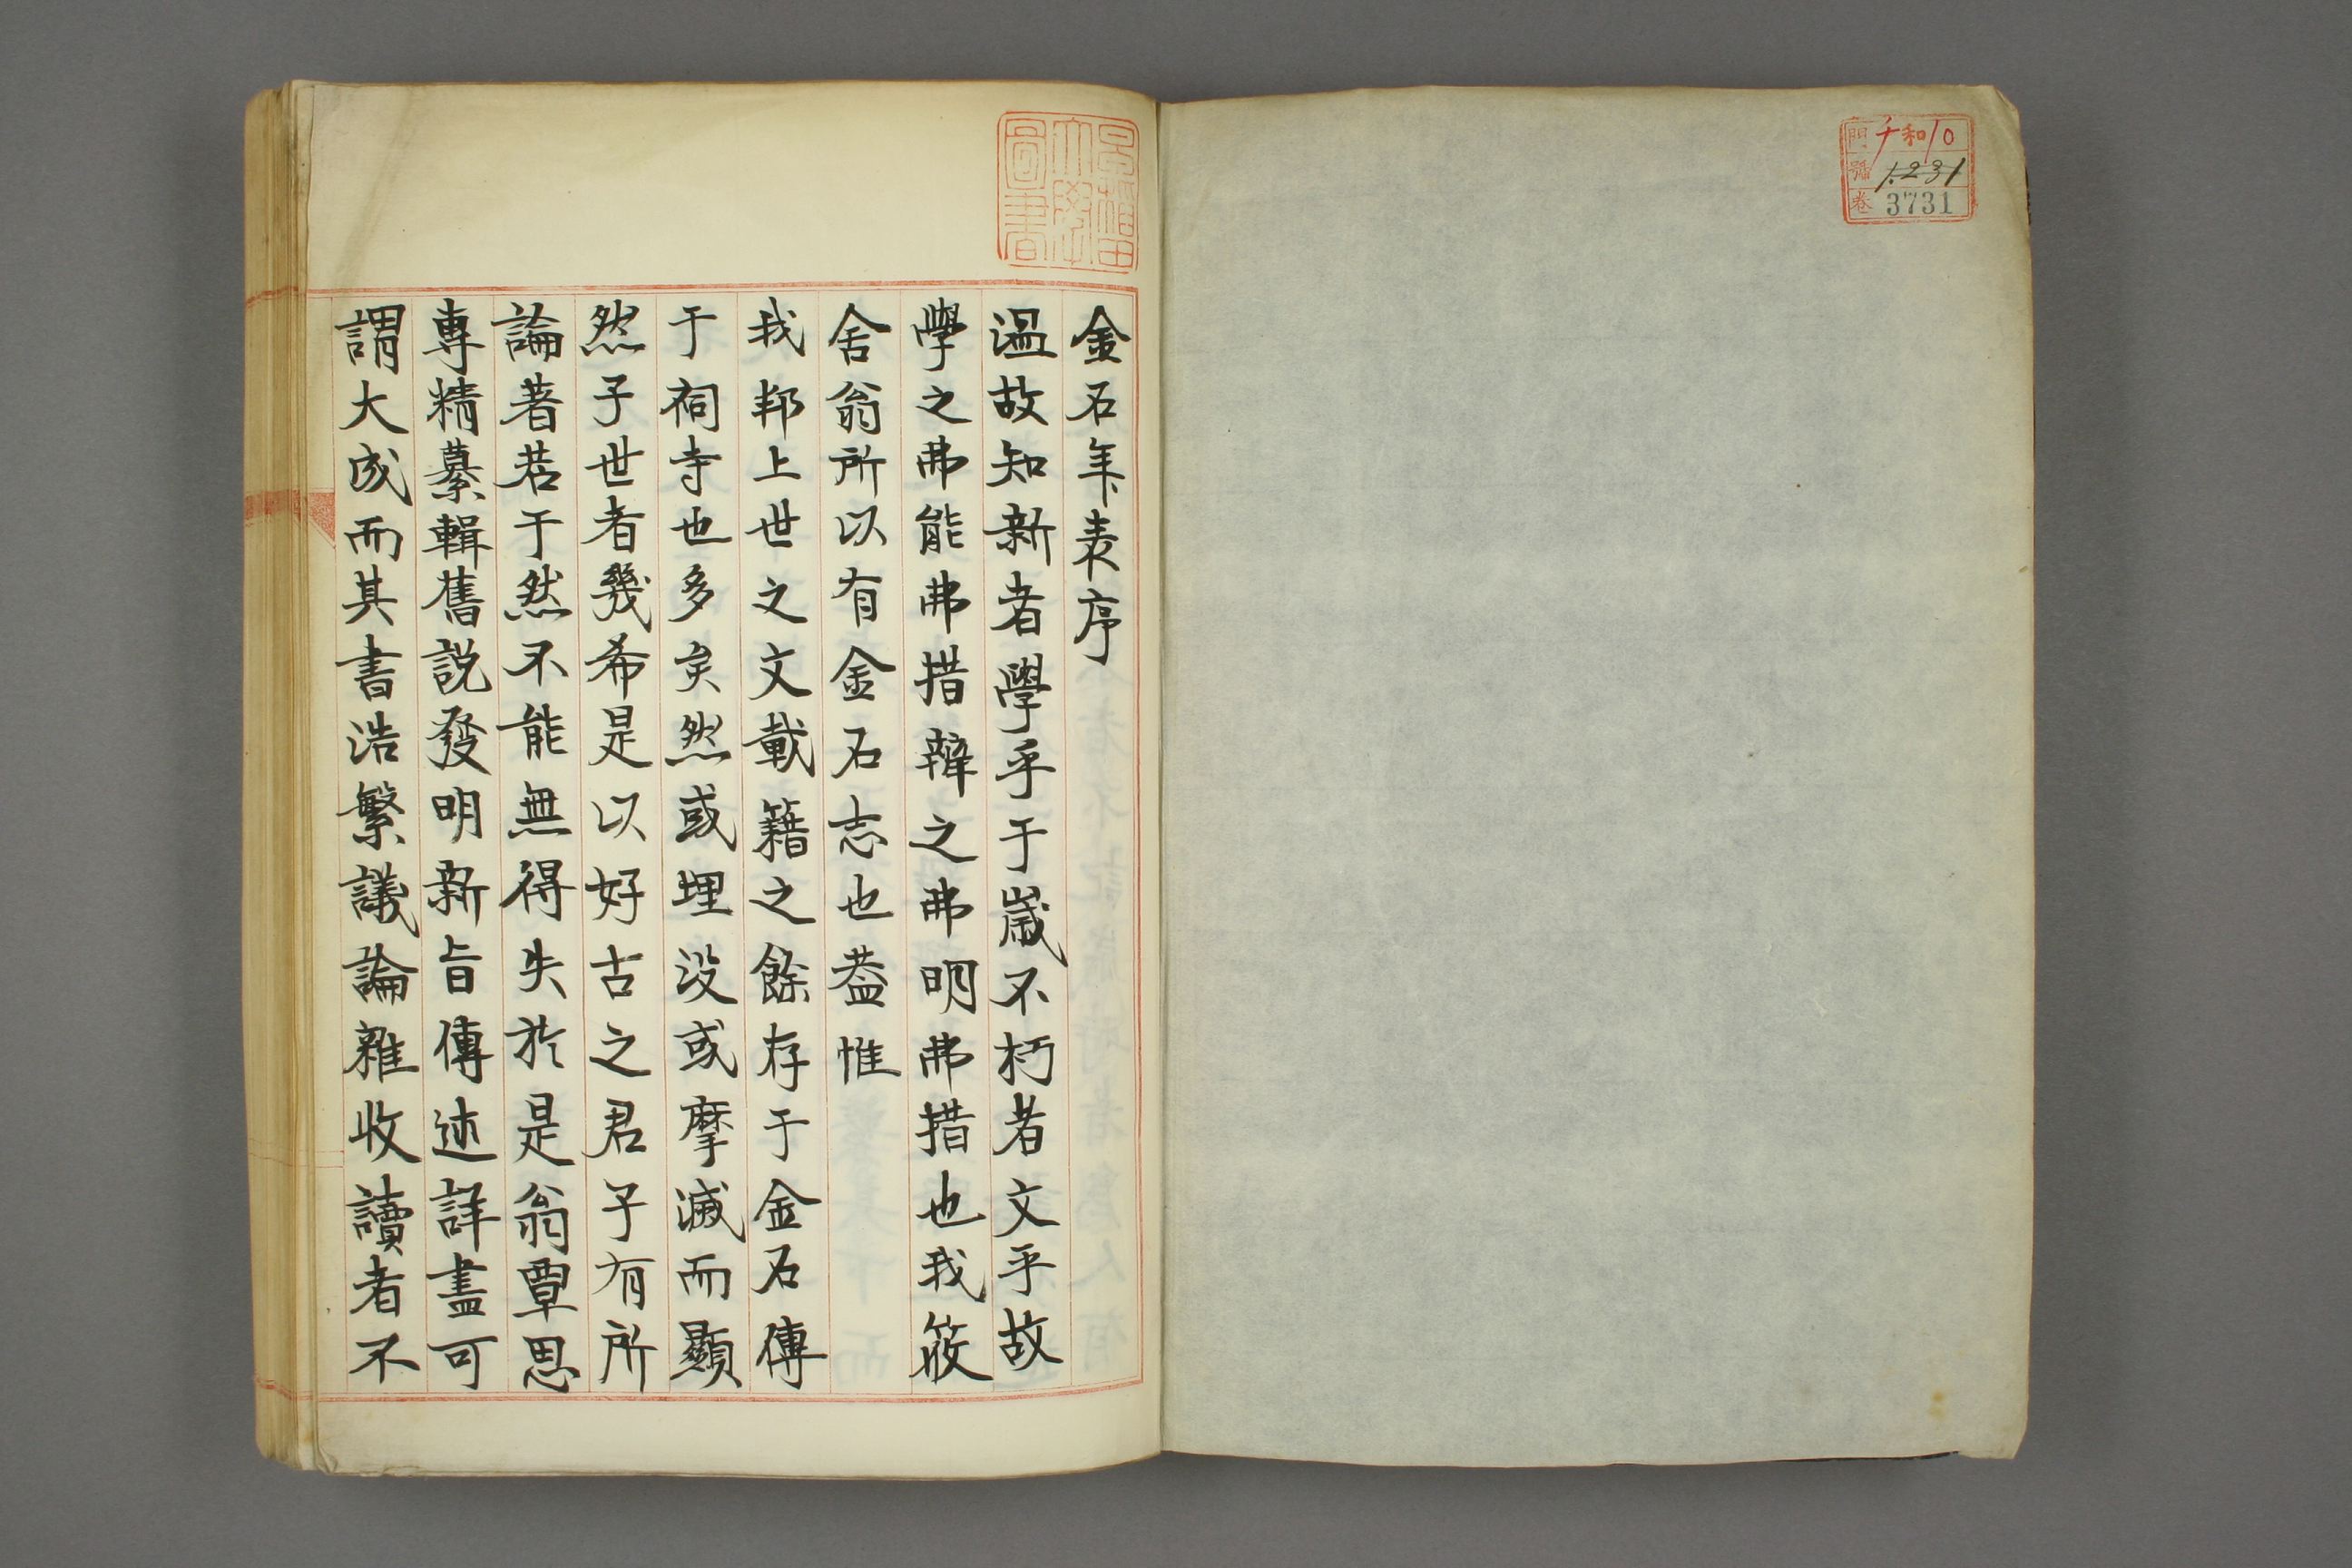 門 千和10
號 1.231
卷 3731
早稲田大學圖書
金石年表序
温故知新者學乎于歳不朽者文乎故
學之弗能弗措辯之弗明弗措也我筱
舍翁所以有金石志也葢惟
我邦上世之文載籍之餘存于金石傳
于祠寺也多矣然或埋没或摩滅而顯
然于世者幾希是以好古之君子有所
論著若于然不能無得失於是翁覃思
專精纂輯舊説發明新旨傳述詳盡可
謂大成而其書浩繁議論雜收讀者不